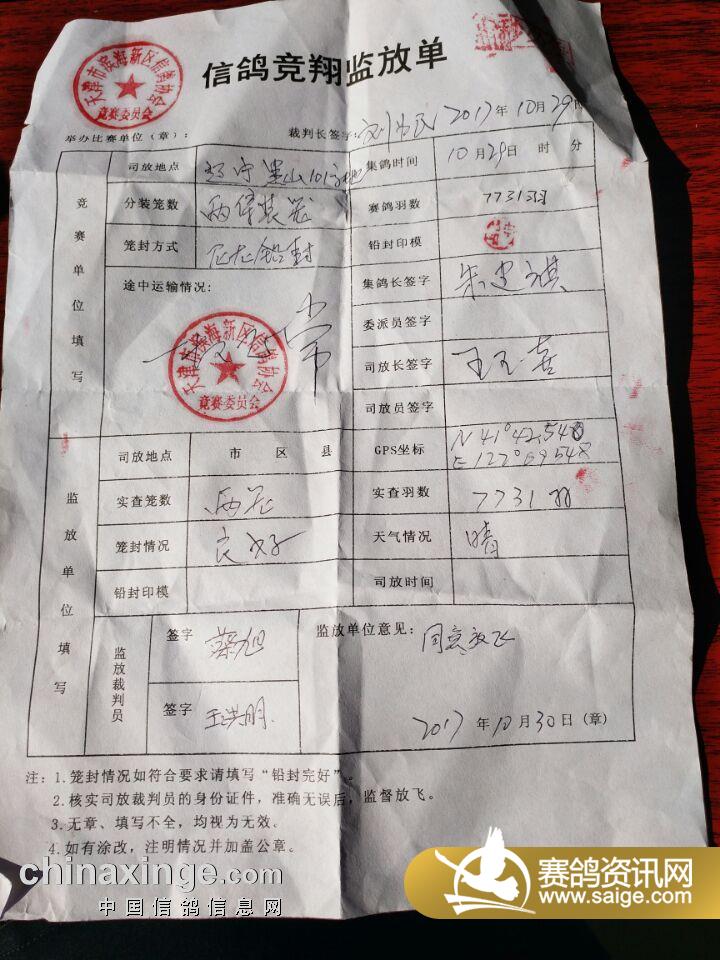 信鸽竞翔监放单
天津市滨海新区信鸽协会
竞赛委员会
举办比赛单位（章）： 裁判长签字： 2017年10月29日
竞赛单位填写
司放地点 辽宁黑山101 集鸽时间 10月29日 时 分
分装笼数 两笔装笼 赛鸽羽数 7731羽
笼封方式 铅封 铅封印模
途中运输情况： 正常 集鸽长签字
委派员签字
天津市滨海新区信鸽协会
竞赛委员会
司放长签字 王玉喜
司放员签字
监放单位填写
司放地点 市 区 县 GPS坐标 N 41°42.548 E 122°09548
实查笼数 两笼 实查羽数 7731羽
笼封情况 良好 天气情况 晴
铅封印模 司放时间
监放裁判员 签字 蔡旭 监放单位意见： 同意放飞
签字 王洪明 2017年10月30日（章）
注：1.笼封情况如符合要求请填写“铅封完好”。
2.核实司放裁判员的身份证件，准确无误后，监督放飞。
3.无章、填写不全，均视为无效。
4.如有涂改，注明情况并加盖公章。
chinaxinge.com
中国信鸽信息网
赛鸽资讯网
www.saige.com